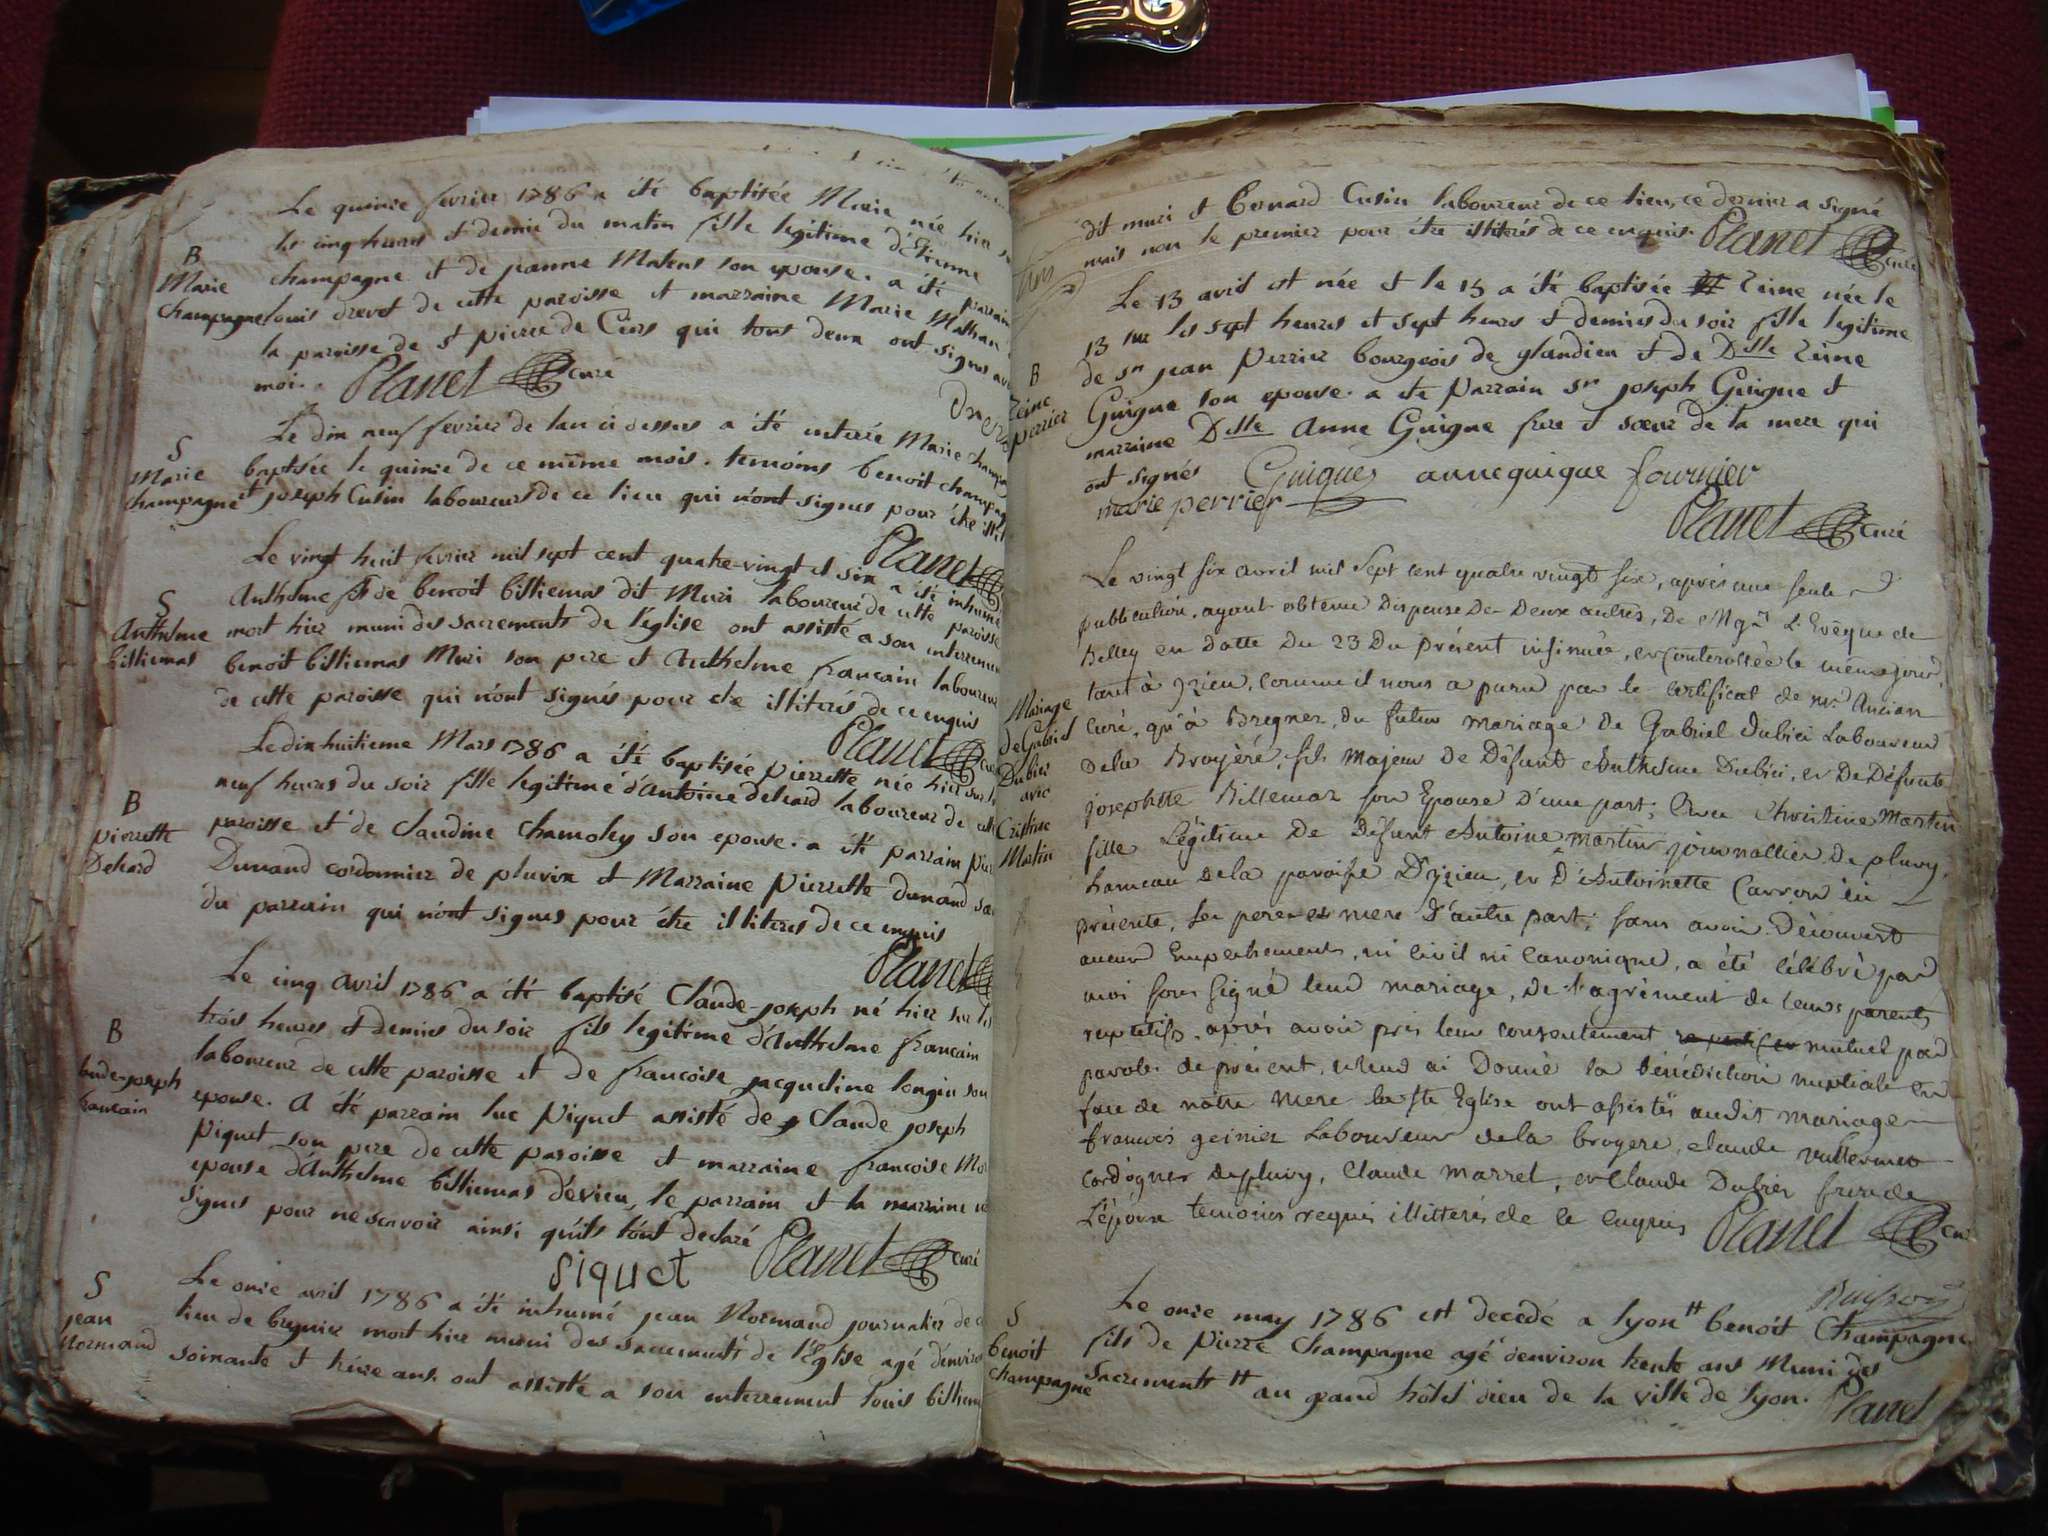 Le quinze fevrier 1786 a été baptisée Marie née hier
les cinq heures et demie du matin fille legitime d'Etienne
B
Marie
Champagne
champagne et de jeanne Mathens son epouse. a été parrain
louis drevet de cette paroisse et marraine Marie Mathan
la paroisse de st pierre de Cers qui tous deux ont signés avec
moi. Planet curé
Le dix neuf fevrier de l'an ci dessus a été enterré Marie champagne
S
Marie
champagne
baptisée le quinze de ce même mois. temoins benoit champagne
et joseph Cusin laboureurs de ce lieu qui n'ont signés pour être
Planet
Le vingt huit fevrier mil sept cent quatre-vingt et six a été inhumé
S
Anthelme
billiemas
Anthelme fils de benoit billiemas dit Muri laboureur de cette paroisse
mort hier muni des sacrements de l'eglise ont assisté a son interrement
benoit billiemas Muri son pere et Anthelme francain laboureur
de cette paroisse qui n'ont signés pour etre illiterés de ce enquis
Planet
Le dix huitieme Mars 1786 a été baptisée pierrette née hier sur les
B
pierrette
Dehard
neuf heures du soir fille legitime d'Antoine dehard laboureur de cette
paroisse et de claudine chamoley son epouse. a été parrain
Dunand cordonnier de pluvix et Marraine pierrette dunand
du parrain qui n'ont signés pour être illiteres de ce enquis
Planet
Le cinq Avril 1786 a été baptisé Claude-joseph né hier sur les
B
francain
trois heures et demies du soir fils legitime d'Anthelme francain
laboureur de cette paroisse et de francoise jacqueline longin son
epouse. A été parrain luc piquet assisté de Claude joseph
piquet son pere de cette paroisse et marraine francoise
epouse d'Anthelme billiemas d'évieu, le parrain et la marraine
signés pour ne scavoir ainsi qu'ils l'ont declaré
piquet Planet curé
S
jean
Normand
Le onze avril 1786 a été inhumé jean Normand journalier de ce
lieu de bregnier mort hier muni des sacrements de l'Eglise agé d'environ
soixante et treize ans. ont assisté a son interrement louis
dit muri et benard Cusin laboureur de ce lieu, ce dernier a signé
mais non le premier pour être illiterés de ce enquis. Planet curé
Le 13 avril est née et le 15 a été baptisée Reine née le
13 sur les sept heures et sept heures et demies du soir fille legitime
B
Reine
perrier
de sr jean perrier bourgeois de glandieu et de Dlle Reine
Guigue son epouse. a été parrain sr joseph Guigue et
marraine Dlle Anne Guigue frere et sœur de la mere qui
ont signés Guigues anne guigue fournier
marie perrier
Planet curé
Le vingt six avril mil Sept cent quatre vingt six, après une seule
publication, ayant obtenu Dispense De Deux autres, De Mgr L'Evêque de
Belley en datte Du 23 Du présent insinuée, et controllée le même jour,
tant à Izieu, comme il nous a paru par le certificat de mr Ancian
Mariage
de Gabriel
Dubier
avec
Cristine
Martin
curé, qu'à Bregnier, du futur mariage De Gabriel Dubier Laboureur
De la Bruyère, fils majeur De Défunt Anthelme Dubier, et De Défunte
josephtte Billemaz son Epouse D'une part; Avec Christine Martin
fille Légitime De Défunt Antoine Martin journallier De pluvy,
hameau De la paroisse D'izieu, et D'Antoinette Carron ici
présente, ses pere et mere D'autre part; sans avoir Découvert
aucun Empechements, ni civil ni Canonique, a été célébré par
moi sous signé leur mariage, De l'agrément de leurs parents
respectifs, après avoir pris leur consentement mutuel par
paroles de présent, et leur ai Donné la bénédiction nuptiale en
face de notre mere la ste Eglise ont assistés audit mariage
francois geinier Laboureur de la bruyere, claude vullermet
cordogner de pluvy, Claude marret, et Claude Dubier frere de
L'époux temoins requis illitterés de ce enquis Planet curé
S
benoit
Champagne
Le onze may 1786 est decedé a lyon benoit Champagne
fils de pierre Champagne agé d'environ trente ans Muni des
Sacrements au grand hôtel dieu de la ville de lyon. Planet